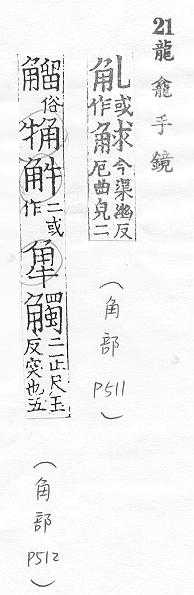 21 龍龕手鏡
觓或作觩今渠幽反曲皃二
（角部 P511）
俗⿰牜角⿰角牛二或作⿱角牛觸二正尺玉反突也五
（角部 P512）